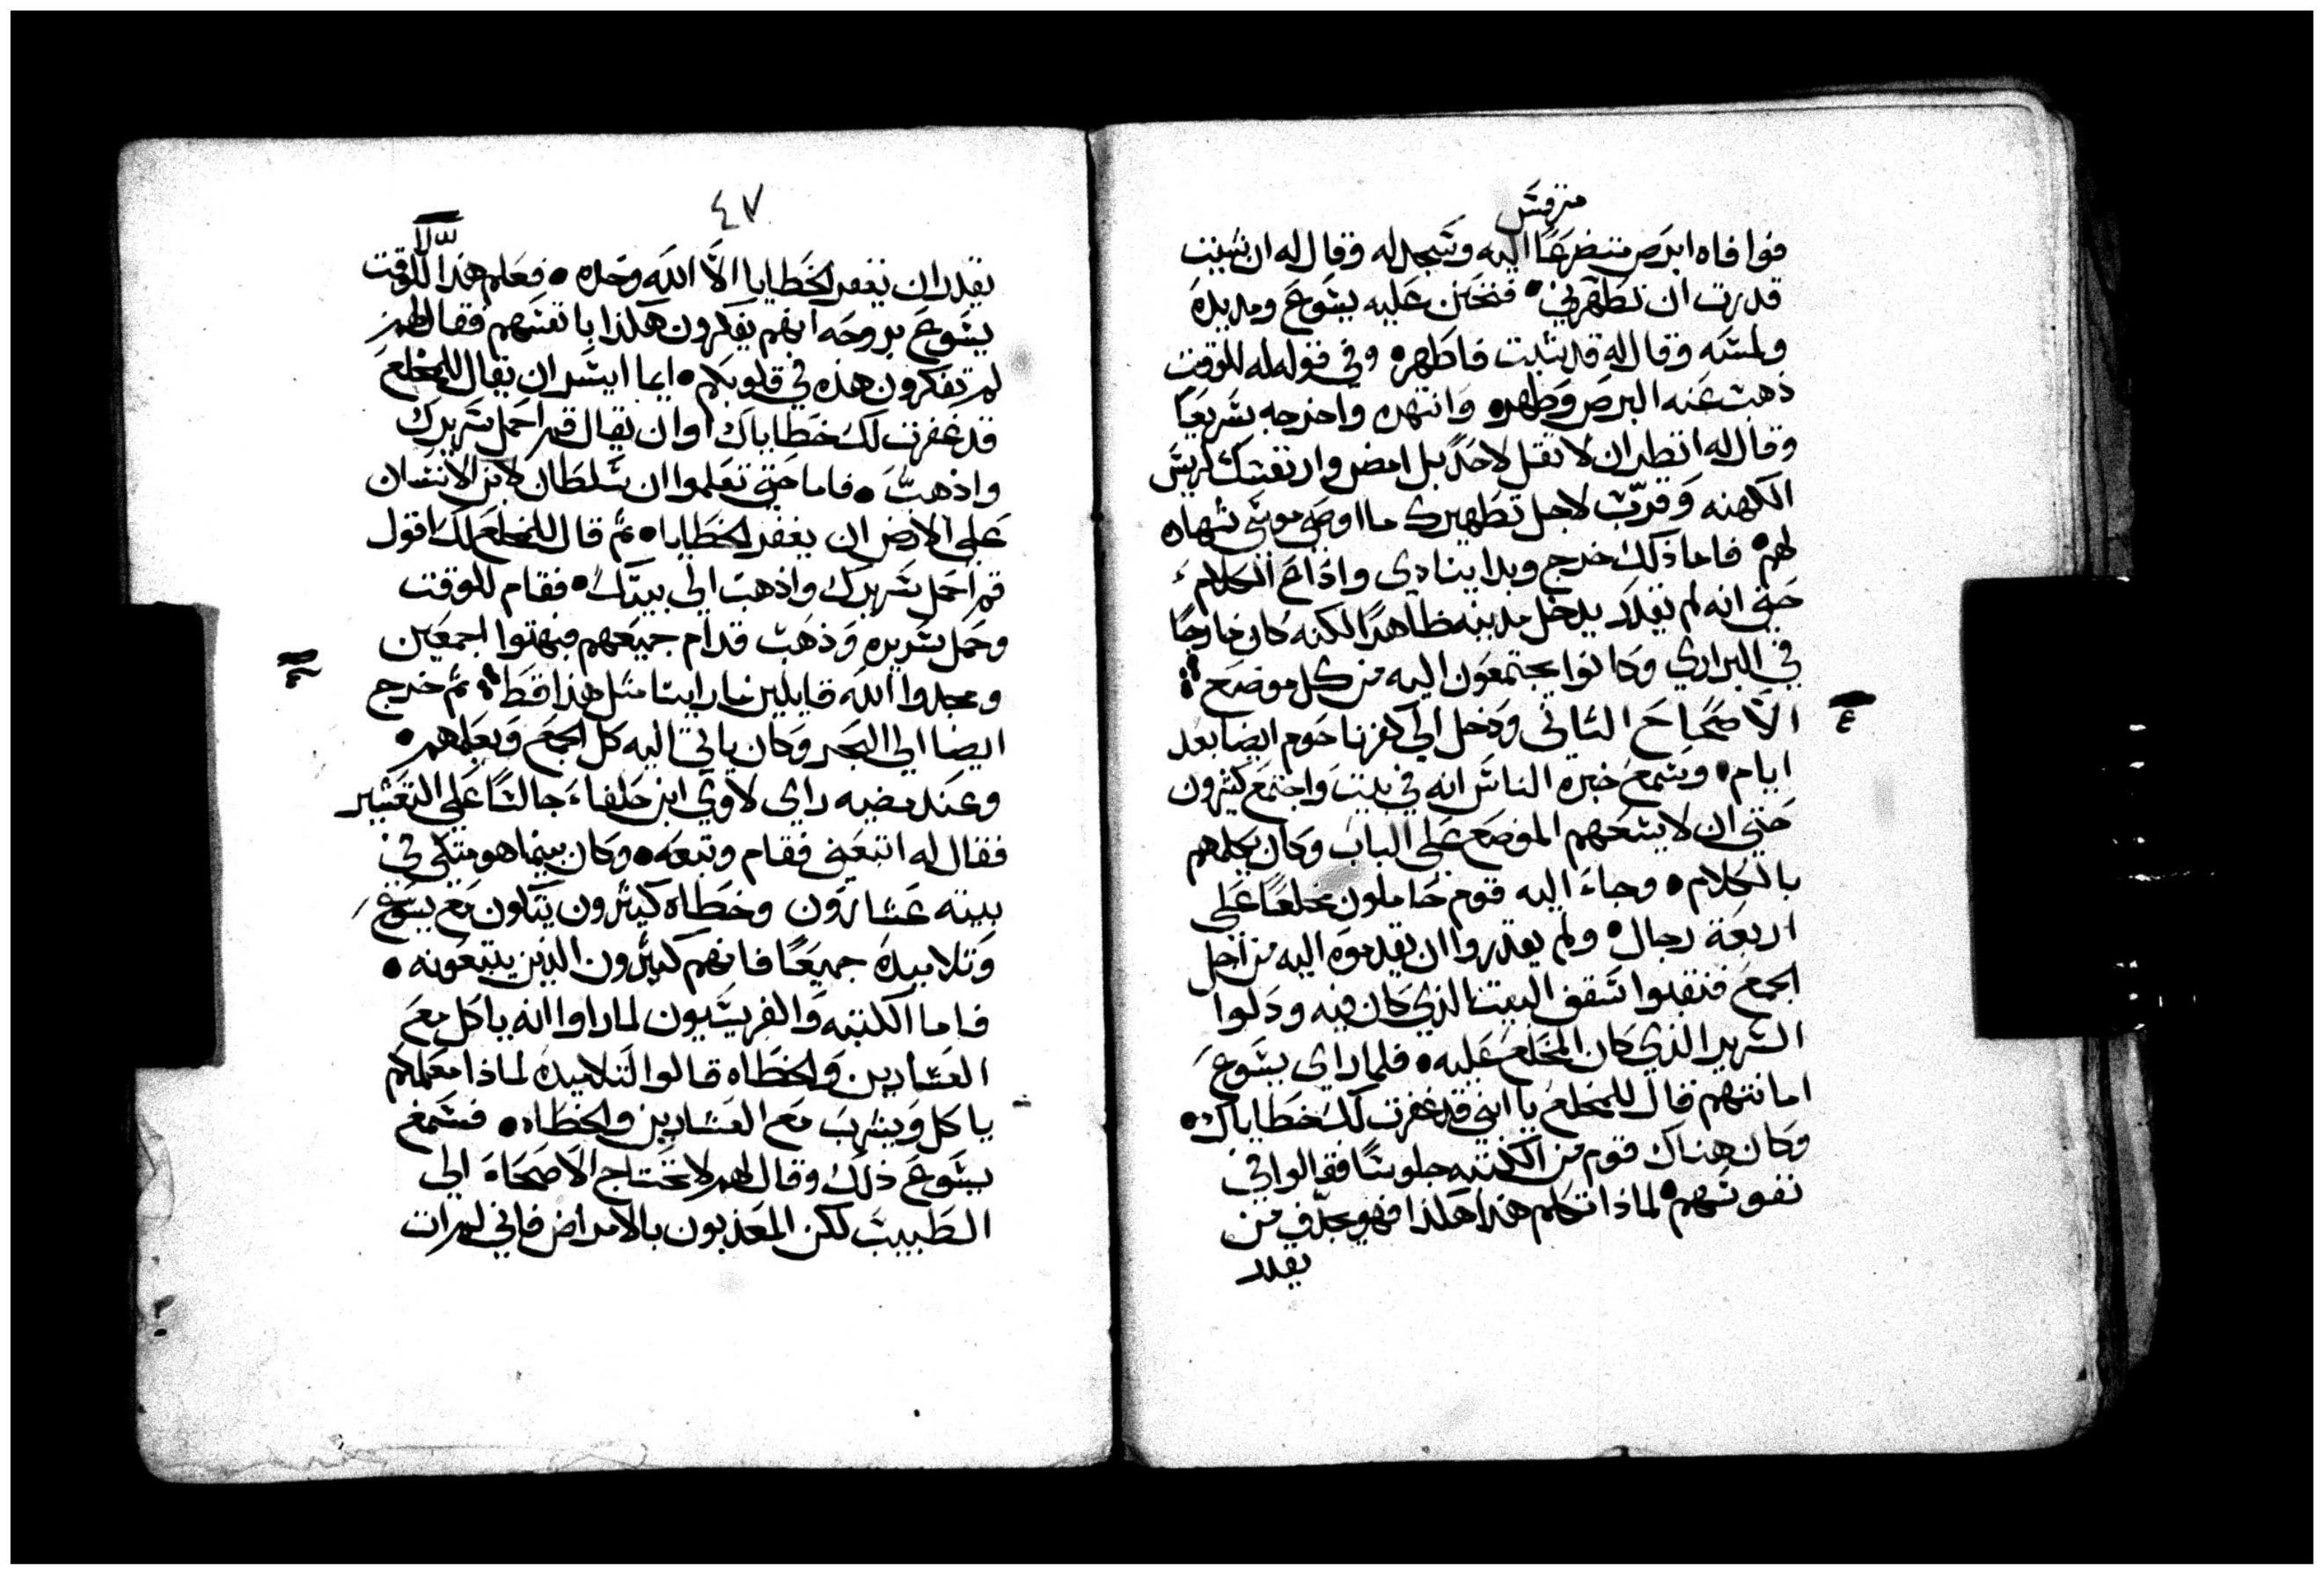 مرقس
فوافاه ابرص متضرعًا اليه وسجد له وقال له ان شيت
قدرت ان تطهرني • فتحنن عليه يسوع ومد يده
ولمسه وقال له قد شيت فاطهر • وفي قوله له للوقت
ذهب عنه البرص وطهر • وانتهره واخرجه سريعًا
وقال له انظر ان لا تقل لاحد بل امض وار نفسك لريس
الكهنه وقرّب لاجل تطهيرك ما اوصى موسى شهاده
لهم • فاما ذلك خرج وبدا ينادي واذاع الكلام
حتى انه لم يقدر يدخل مدينه ظاهرًا لكنه كان خارجًا
في البراري وكانوا يجتمعون اليه من كل موضع
الاصحاح الثاني ودخل الي كفرناحوم ايضا بعد
٤
ايام • وسمع خبره الناس انه في بيت واجتمع كثيرون
حتى ان لا يسعهم الموضع علي الباب وكان يكلمهم
بالكلام • وجاء اليه قوم حاملون مخلعًا علي
اربعة رجال • ولم يقدروا ان يقدموه اليه من اجل
الجمع فنقبوا سقف البيت الذي كان فيه ودلوا
السرير الذي كان المخلع عليه • فلما راي يسوع
امانتهم قال للمخلع يا ابني قد غفرت لك خطاياك •
وكان هناك قوم من الكتبه جلوسًا فقالوا في
نفوسهم • لماذا تكلم هذا هكذا فهو يجدّف من
يقدر
٤٧
يقدر ان يغفر الخطايا الاّ الله وحده • فعلم هذا للوقت
يسوع بروحه انهم يفكرون هكذا بانفسهم فقال لهم
لم تفكرون هذه في قلوبكم • ايما ايسر ان يقال للمخلع
قد غفرت لك خطاياك اوان يقال قم احمل سريرك
واذهب • فاما حتى تعلموا ان سلطان لابن الانسان
علي الارض ان يغفر الخطايا • ثم قال للمخلع لك اقول
قم احمل سريرك واذهب الي بيتك • فقام للوقت
وحمل سريره وذهب قدام جميعهم فبهتوا اجمعين
ومجدوا الله قايلين ما راينا مثل هذا قط ثم خرج
ايضا الي البحر وكان ياتي اليه كل الجمع ويعلمهم •
وعند مضيه راي لاوي ابن حلفاء جالسًا علي التعشير
فقال له اتبعني فقام وتبعه • وكان بينما هو متكي في
بيته عشارون وخطاه كثيرون يتكون مع يسوع
وتلاميده جميعًا فانهم كثيرون الذين يتبعونه •
فاما الكتبه والفريسيون لما راوا انه ياكل مع
العشارين والخطاه قالوا لتلاميده لماذا معلمكم
ياكل ويشرب مع العشارين والخطاه • فسمع
يسوع ذلك وقال لهم لا تحتاج الاصحاء الي
الطبيب لكن المعذبون بالامراض فاني لم ات